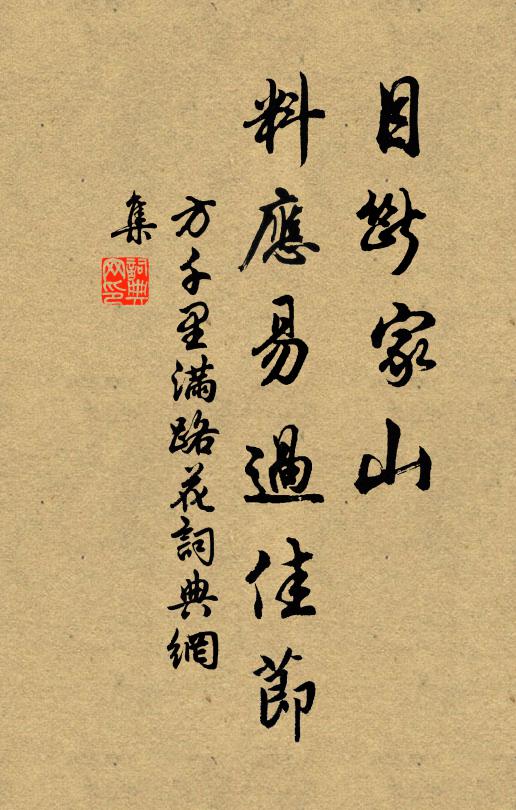 目斷家山
料應易過佳節
方千里滿路花詞典網
集
詞典
網印